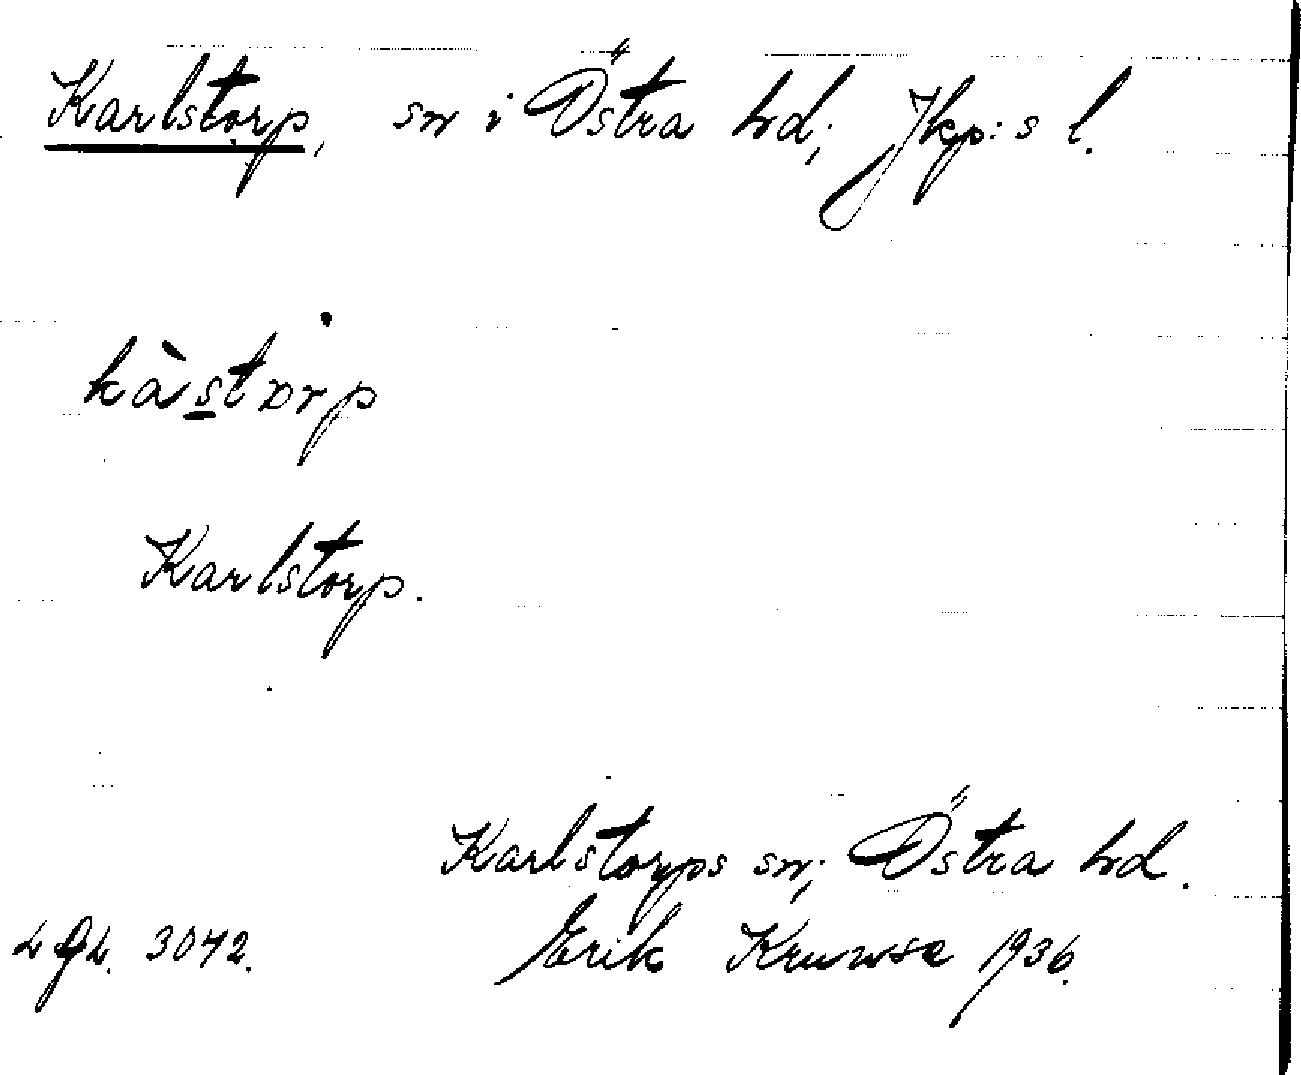 Karlstorp, sn i Östra hd; Jkp:s l.
kàstorp
Karlstorp.
Karlstorps sn; Östra hd.
Erik Kruuse 1936.
3072.